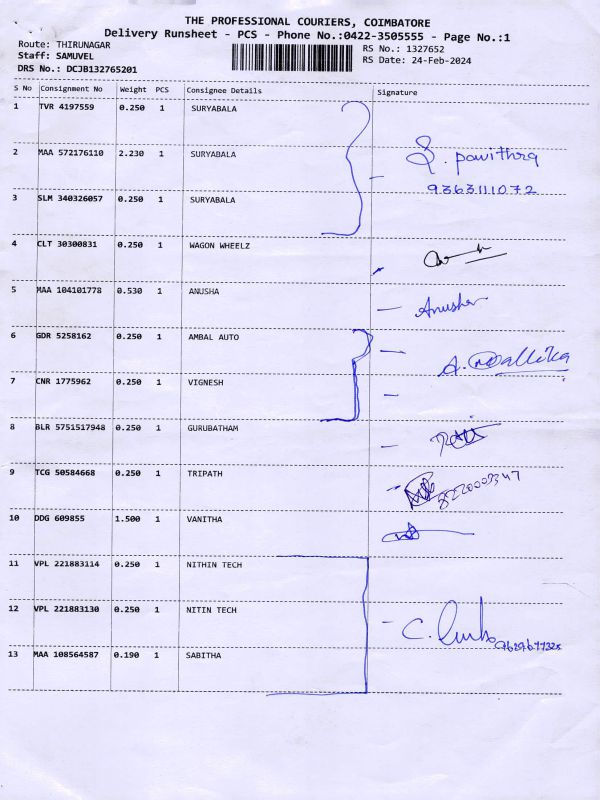 THE PROFESSIONAL COURIERS, COIMBATORE
Delivery Runsheet - PCS - Phone No.:0422-3505555 - Page No.:1
Route: THIRUNAGAR RS No.: 1327652
Staff: SAMUVEL RS Date: 24-Feb-2024
DRS No.: DCJB132765201
S No Consignment No Weight PCS Consignee Details Signature
1 TVR 4197559 0.250 1 SURYABALA
2 MAA 572176110 2.230 1 SURYABALA S. pavithra
9363111072
3 SLM 340326057 0.250 1 SURYABALA
4 CLT 30300831 0.250 1 WAGON WHEELZ
5 MAA 104101778 0.530 1 ANUSHA Anusha
6 GDR 5258162 0.250 1 AMBAL AUTO A. Mallika
7 CNR 1775962 0.250 1 VIGNESH
8 BLR 5751517948 0.250 1 GURUBATHAM
9 TCG 50584668 0.250 1 TRIPATH
10 DDG 609855 1.500 1 VANITHA
11 VPL 221883114 0.250 1 NITHIN TECH
12 VPL 221883130 0.250 1 NITIN TECH C.
13 MAA 108564587 0.190 1 SABITHA